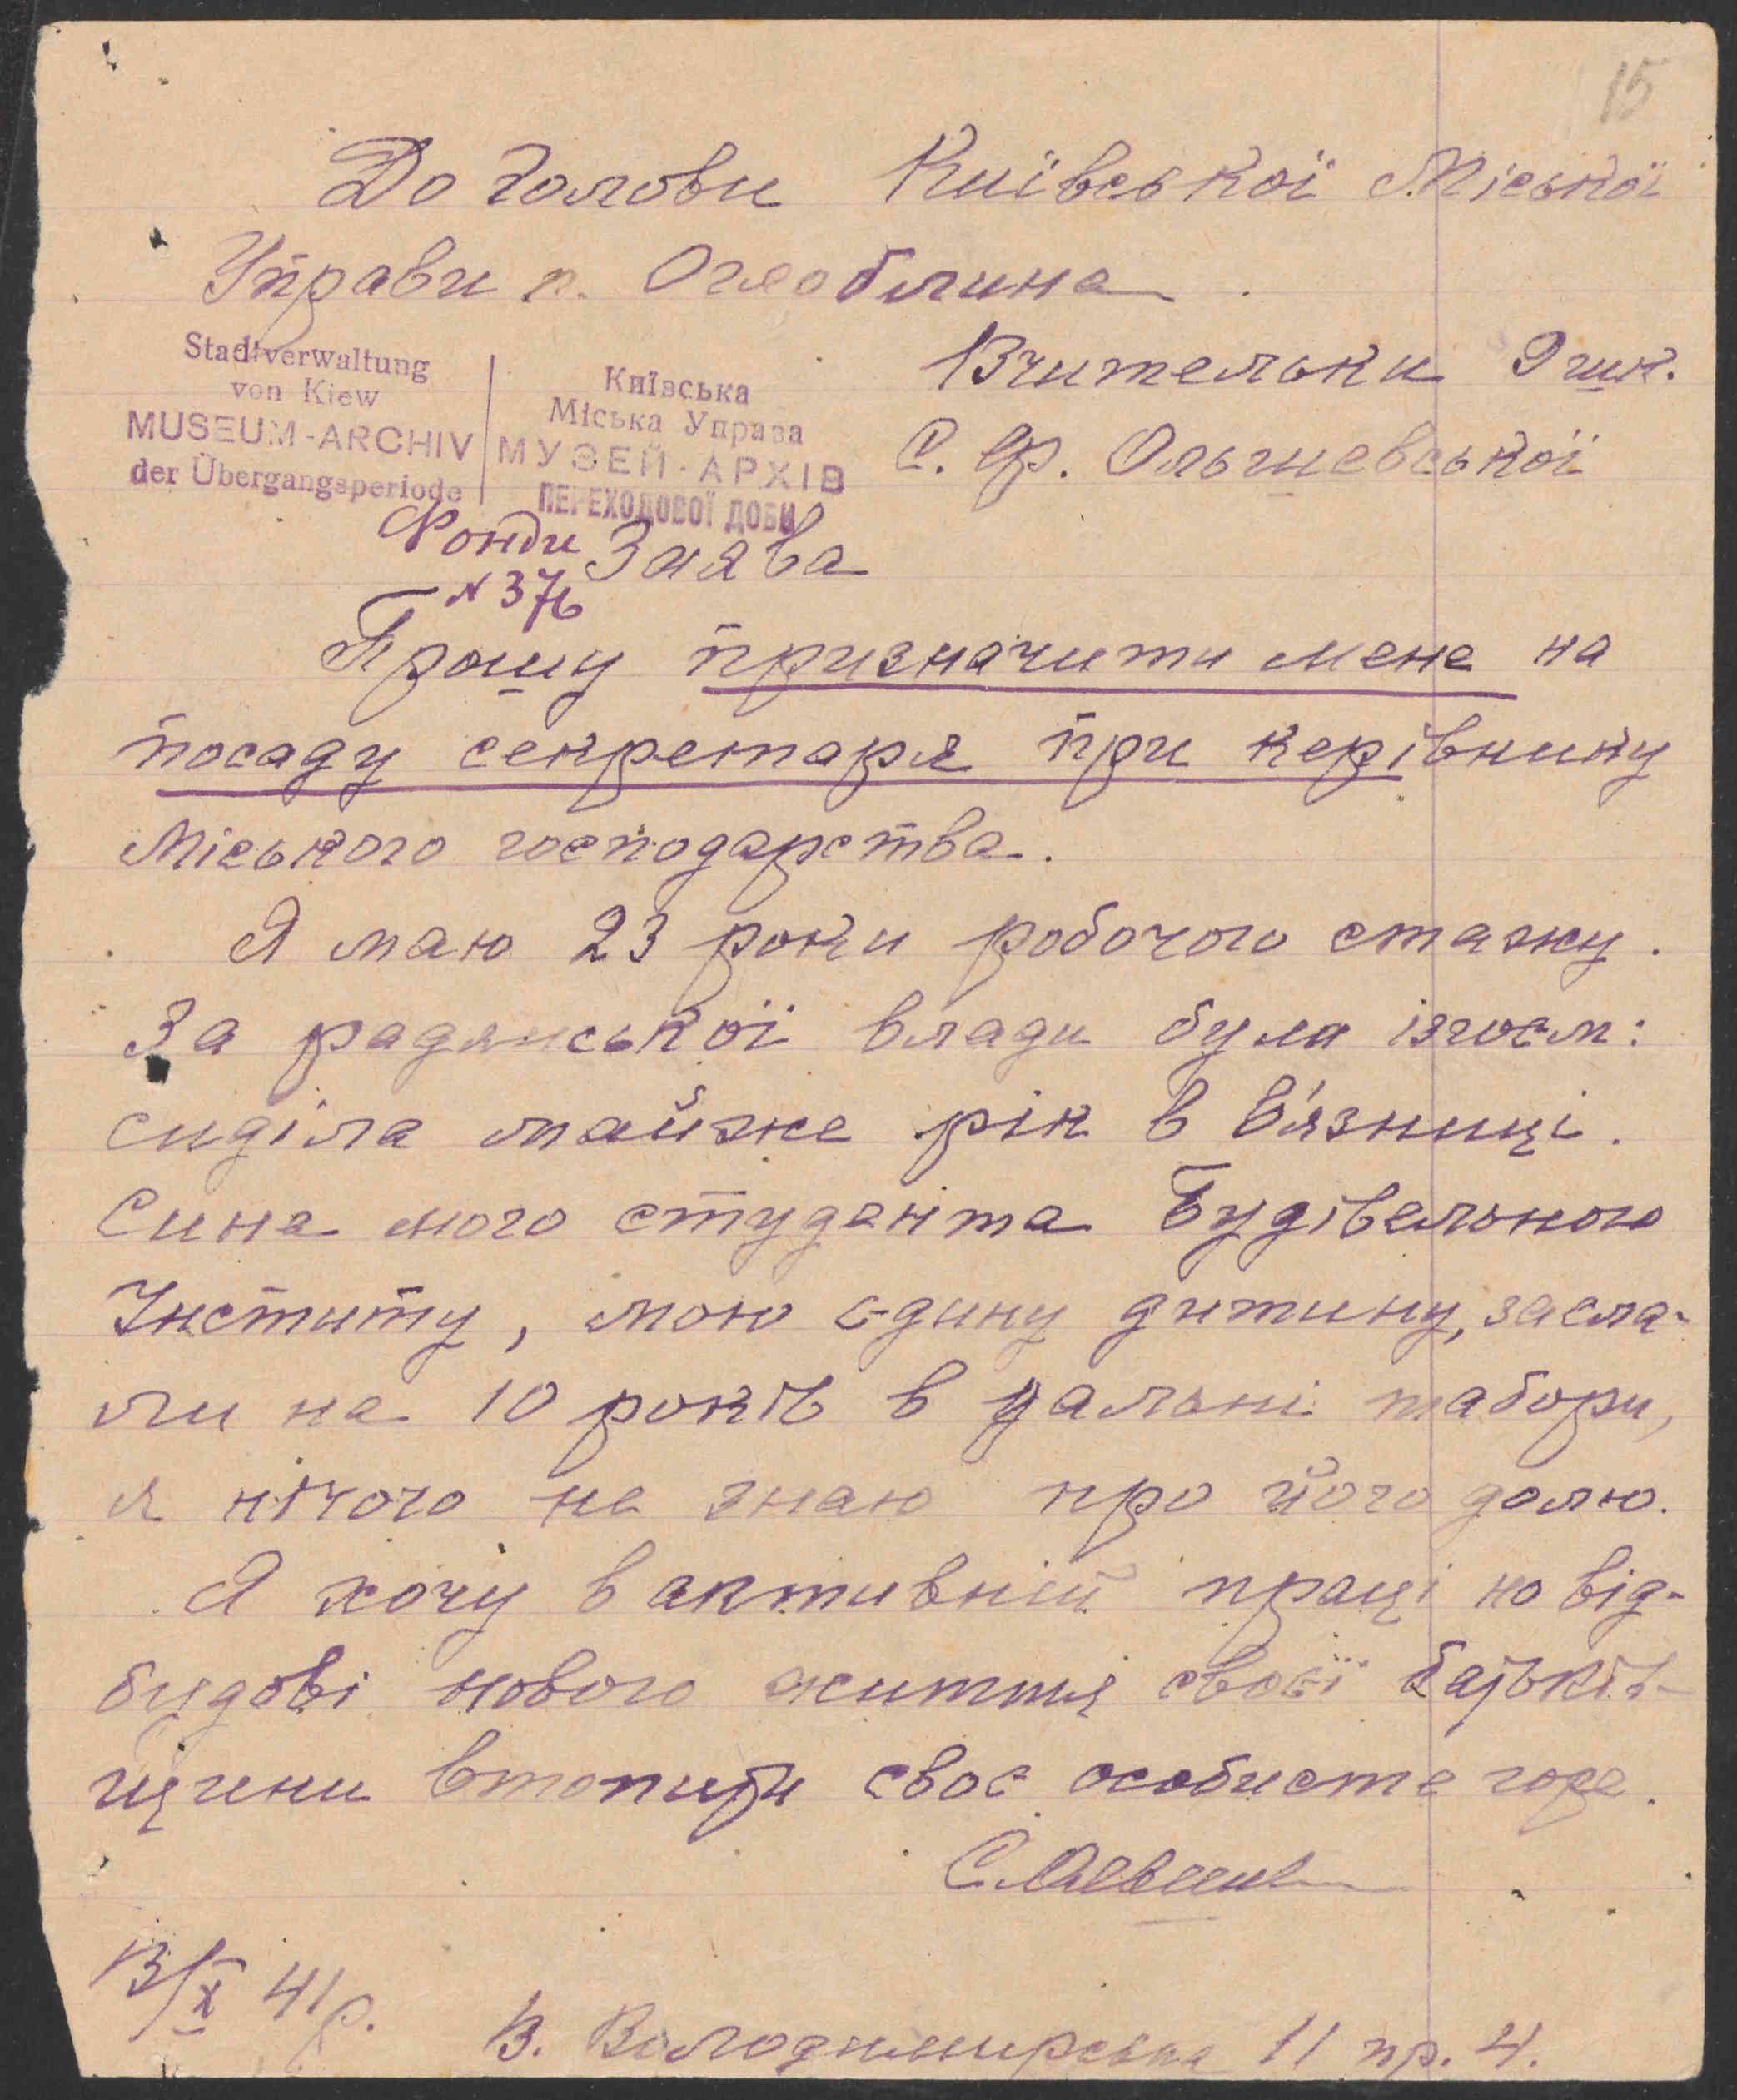 15
До Голови Київської Міської
Управи п. Оглоблина
Stadtverwaltung
von Kiew
MUSEUM-ARCHIV
der Übergangsperiode
Київська
Міська Управа
МУЗЕЙ-АРХІВ
ПЕРЕХОДОВОЇ ДОБИ
Вчительки 9 шк.
С. Ольшевської
Фонди
N 376
Заява
Прошу призначити мене на
посаду секретаря при керівнику
Міського господарства.
Я маю 23 роки робочого стажу.
За радянської влади була ізгоєм:
сиділа майже рік в в'язниці.
Сина мого студента Будівельного
Інституту, мою єдину дитину, засла-
ли на 10 років в дальні табори,
я нічого не знаю про його долю.
Я хочу в активній праці по від-
будові нового життя своєї батьків-
щини втопити своє особисте горе.
13/X 41 р.
В. Володимирська 11 пр. 4.